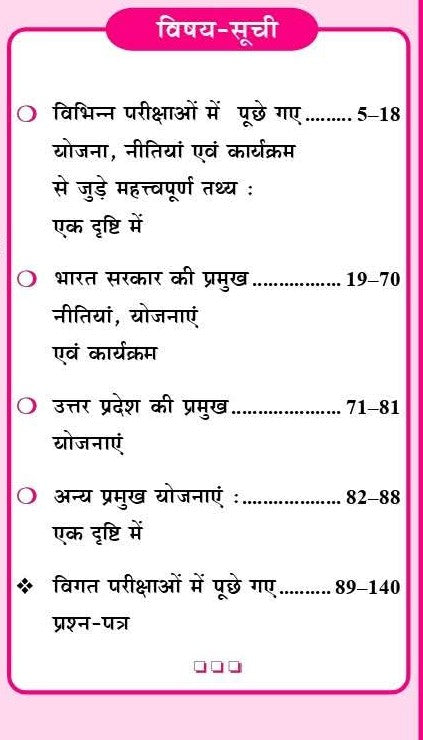 विषय-सूची
❍ विभिन्न परीक्षाओं में पूछे गए ......... 5–18
योजना, नीतियां एवं कार्यक्रम
से जुड़े महत्त्वपूर्ण तथ्य :
एक दृष्टि में
❍ भारत सरकार की प्रमुख ................. 19–70
नीतियां, योजनाएं
एवं कार्यक्रम
❍ उत्तर प्रदेश की प्रमुख..................... 71–81
योजनाएं
❍ अन्य प्रमुख योजनाएं :................... 82–88
एक दृष्टि में
❖ विगत परीक्षाओं में पूछे गए.......... 89–140
प्रश्न-पत्र
❑❑❑